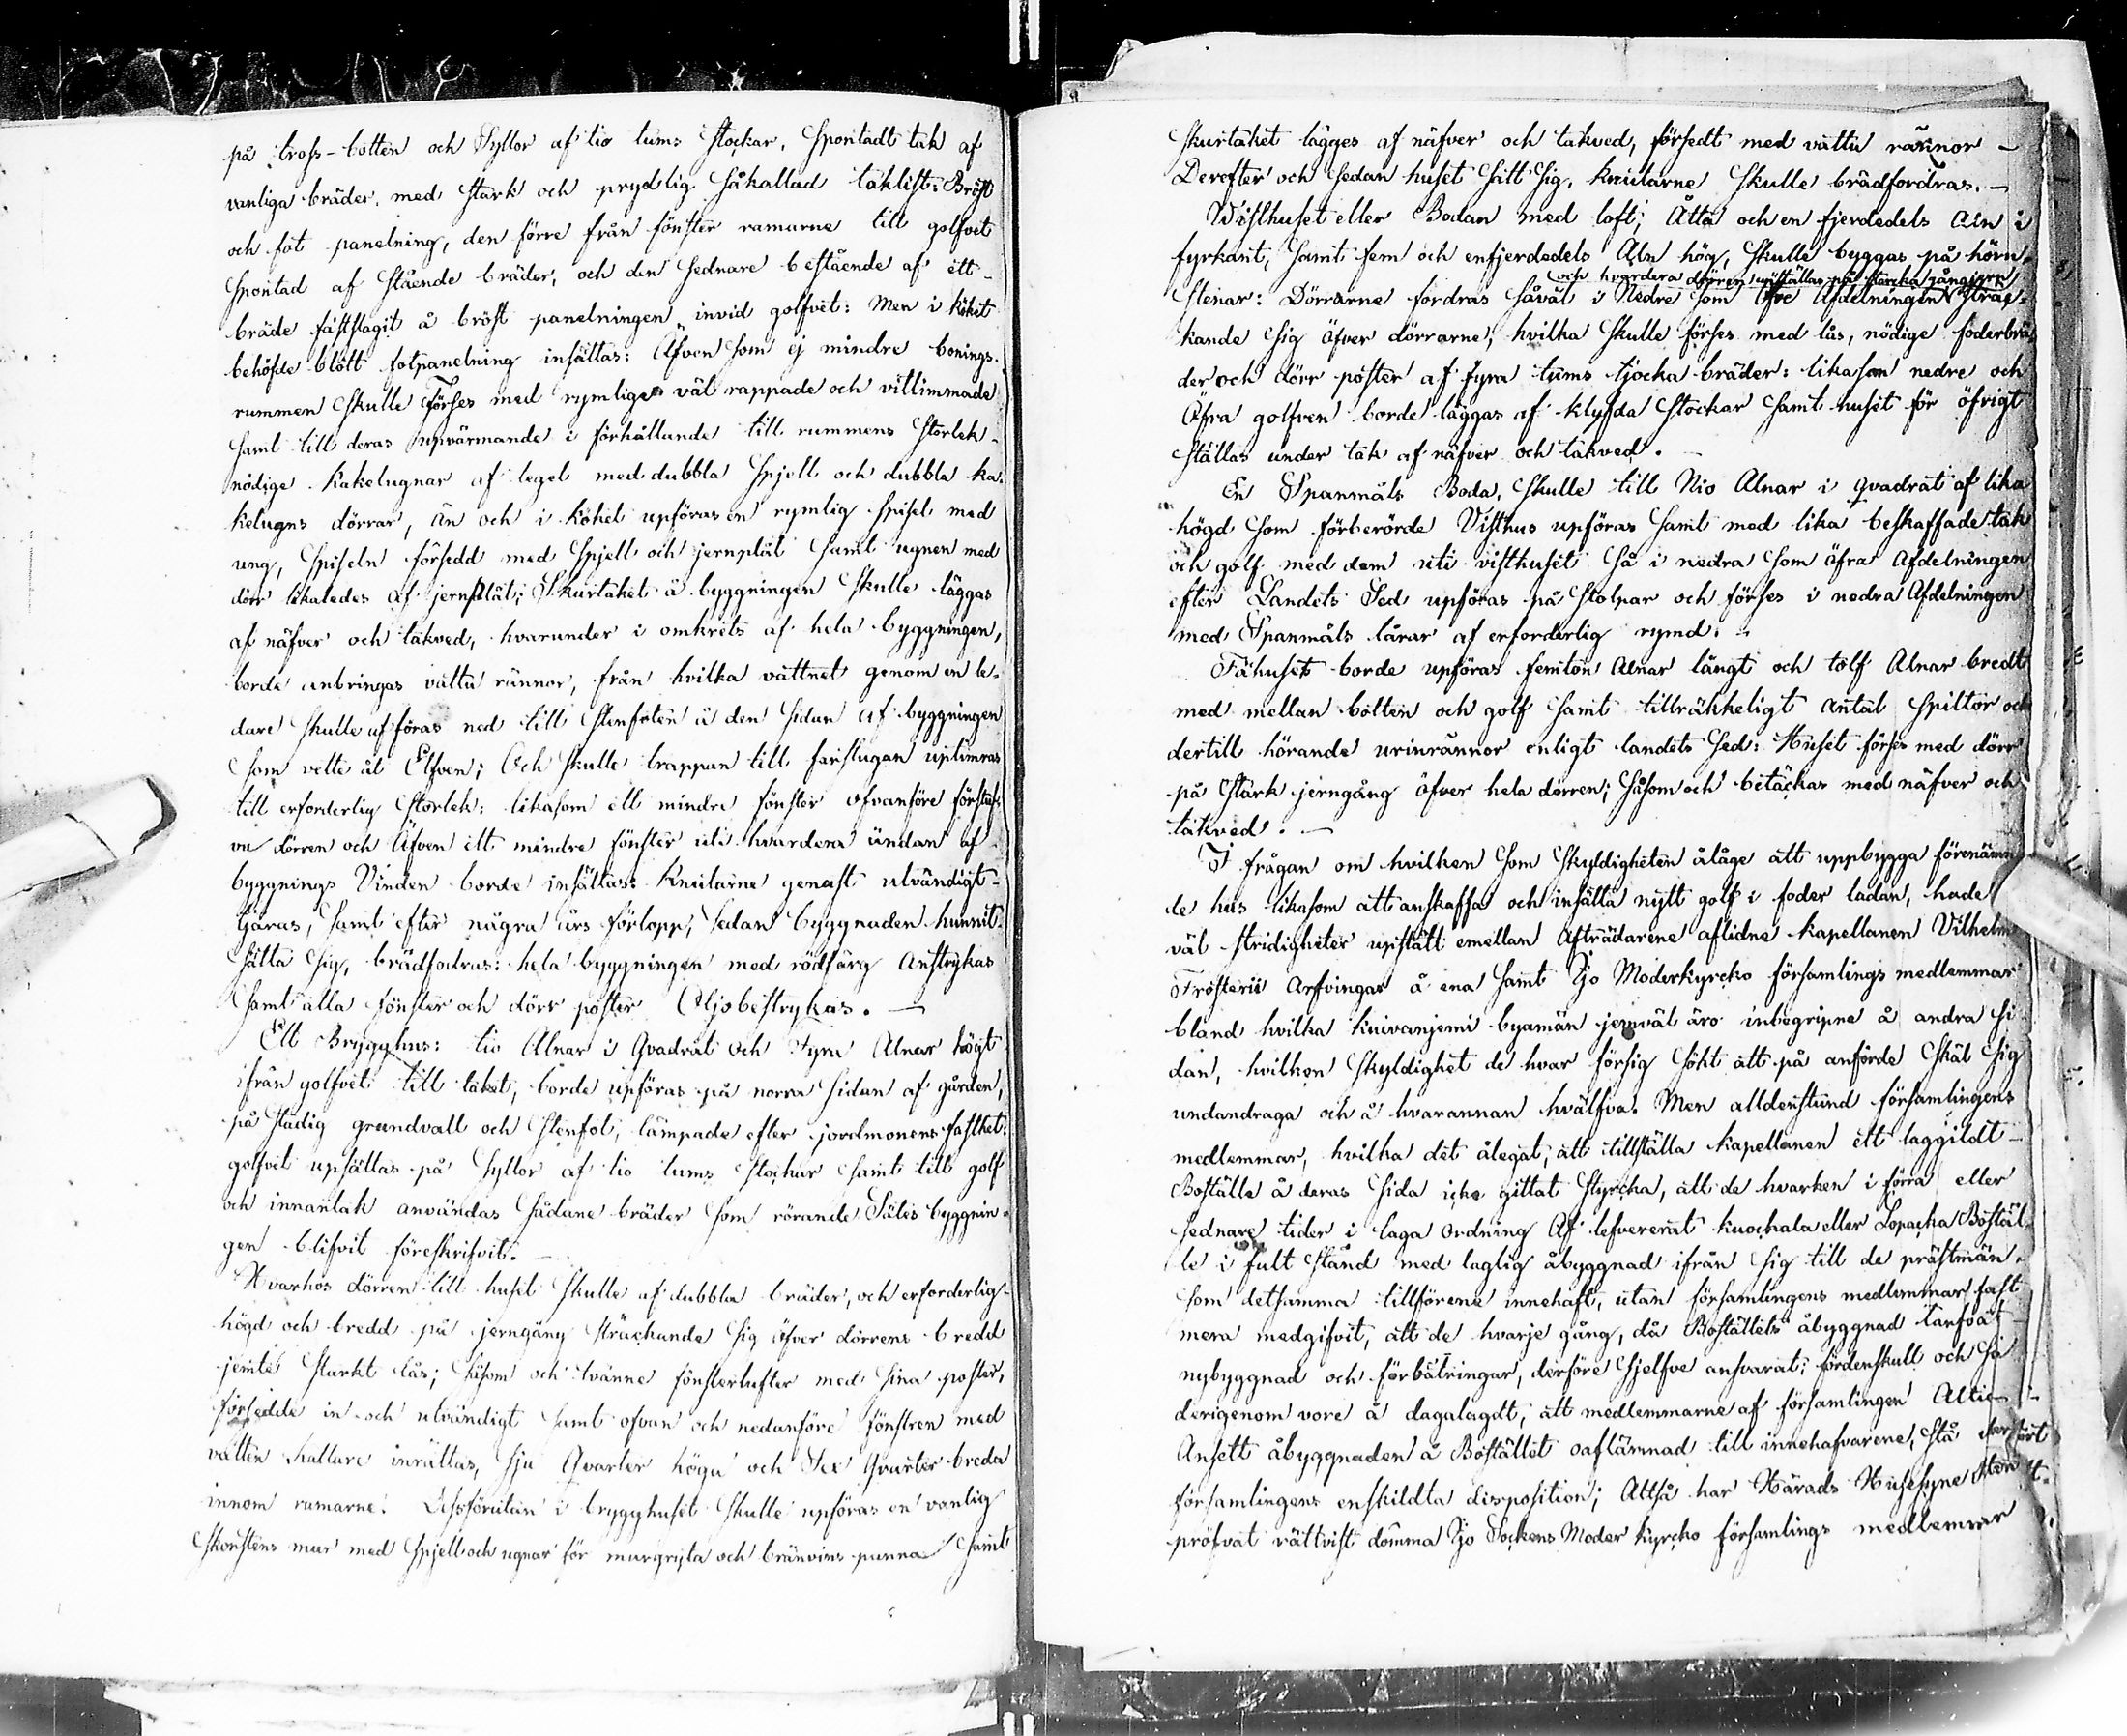 på tross-botten och Syllor af tio tums Stockar, Spontadt tak af
vanliga bräder, med Stark och prydlig såkallad taklist: Bröst
och fot panelning, den förre från fönster ramarne till golfvet
Spontad af Stående bräder, och den Sednare bestående af ett
bräde fastslagit å bröst panelningen invid golfvet: Men i köket
behöfde blott fotpanelning insättas: Äfven Som ej mindre bonings-
rummen Skulle Förses med rymliga väl rappade och vitlimmade
Samt till deras upvärmande i förhållande till rummens Storlek
nödige Kakelugnar af tegel med dubbla Spjell och dubbla ka-
kelugns dörrar, än och i Köket upföras en rymlig Spisel med
ung, Spiseln försedd med Spjell och jernplåt Samt ugnen med
dörr likaledes af jernplåt; Skurtaket å byggningen Skulle läggas
af näfver och takved, hvarunder i omkrets af hela byggningen,
borde anbringas vattu rännor, från hvilka vattnet genom en le-
dare Skulle afföras ned till Stenfoten å den Sidan af byggningen
Som vette åt Elfven; Och Skulle trappan till farstugan uptimras
till erforderlig Storlek: likasom ett mindre fönster ofvanföre förstuf-
vu dörren och Äfven ett mindre fönster uti hvardera ändan af
byggnings Vinden borde insättas: Knutarne genast utvändigt
tjäras, Samt efter några års förlopp, Sedan byggnaden hunnit
Sätta Sig, brädfodras: hela byggningen med rödfärg anstrykas
Samt alla fönster och dörr poster Oljobestrykas. —
Ett Brygghus: tio Alnar i Qvadrat och Fyra Alnar högt
ifrån golfvet till taket, borde upföras på norra Sidan af gården,
på Stadig grundvall och Stenfot, lämpade efter jordmonens fasthet:
golfvet upsättas på Syllor af tio tums Stockar Samt till golf
och innantak användas Sådane bräder Som rörande Säles byggnin-
gen blifvit föreskrifvit. —
Hvarhos dörren till huset Skulle af dubbla bräder, och erforderlig
högd och bredd på jerngång Sträckande Sig öfver dörrens bredd
jemte Starkt lås; Såsom och tvänne fönsterlufter med Sina poster,
försedde in- och utvändigt Samt ofvan och nedanföre fönstren med
vatten hallare inrättas, Sju Qvarter höga och Sex Qvarter breda
innom ramarne. Dessförutan i brygghuset Skulle upföras en vanlig
Skorstens mur med Spjell och ugnar för murgryta och bränvins panna Samt
Skurtaket lägges af näfver och takved, försedt med vattu rännor —
Derefter och Sedan huset Satt Sig, knutarne Skulle brädfordras. —
Visthuset eller Bodan med loft; Åtta och en fjerdedels Aln i
fyrkant, Samt fem och enfjerdedels Aln hög, Skulle byggas på hörn-
och hvardera dörren upställas på Stercka gångjern
Stenar: Dörrarne fordras Såväl i Nedre Som Öfre Afdelningen Sträc-
kande Sig öfver dörrarne, hvilka Skulle förses med lås, nödige foderbrä-
der och dörr poster af fyra tums tjocka bräder: likasom nedre och
Öfra golfven borde läggas af klyfda Stockar Samt huset för öfrigt
ställas under tak af näfver och takved. —
En Spanmåls Boda, Skulle till Nio Alnar i qvadrat af lika
högd Som förberörde Visthus upföras Samt med lika beskaffade tak
och golf med dem uti visthuset Så i nedra Som öfra afdelningen
efter Landets Sed upföras på Stolpar och förses i nedra Afdelningen
med Spanmåls lårar af erforderlig rymd. —
Fähuset borde upföras femton Alnar långt och tolf Alnar bredt
med mellan botten och golf Samt tillräkkeligt antal Spiltor och
dertill hörande urinrännor enligt landets Sed: Huset förses med dörr
på Stark jerngång öfver hela dörren; Såsom och betäckas med näfver och
takved. —
I frågan om hvilken Som Skyldigheten ålåge att uppbygga förenämn-
de hus likasom att anskaffa och insätta nytt golf i foder ladan, hade
väl Stridigheter upstått emellan Afträdarene aflidne Kapellanen Vilhelm
Frosterii Arfvingar å ena Samt Ijo Moderkyrcko församlings medlemmar
bland hvilka Kuivanjemi byamän jemväl äro inbegripne å andra Si-
dan, hvilken Skyldighet de hvar försig Sökt att på anförde Skäl Sig
undandraga och å hvarannan hvälfva. Men alldenstund församlingens
medlemmar, hvilka det ålegat, att tillställa Kapellanen ett laggildt
Boställe å deras Sida icke gittat Styrcka, att de hvarken i förra eller
Sednare tider i laga ordning Af lefvererat Kuockala eller Lopacka Boställ-
le i fult Stånd med laglig åbyggnad ifrån Sig till de prästmän,
Som detsamma tillförene innehaft, utan församlingens medlemmar fast
mera medgifvit, att de hvarje gång, då Boställets åbyggnad tarfvat
nybyggnad och förbättringar, derföre Sjelfve ansvarat; fördenskull och Så
derigenom vore å dagalagdt, att medlemmarne af församlingen Altid
Ansett åbyggnaden å Bostället oaflämnad till innehafvarene, Stå
församlingens enskildta disposition; Altså har Härads Husesyne Rätten
pröfvat rättvist dömma Ijo Sockens Moder Kyrcko församlings medlemmar